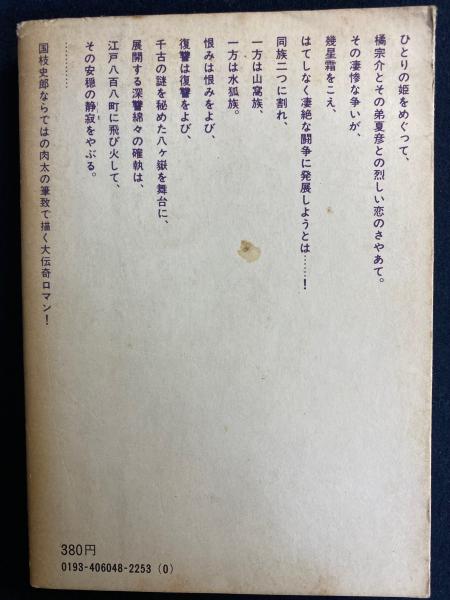 ひとりの姫をめぐって、
橘宗介とその弟夏彦との烈しい恋のさやあて。
その凄惨な争いが、
幾星霜をこえ、
はてしなく凄絶な闘争に発展しようとは……！
同族二つに割れ、
一方は山窩族、
一方は水狐族。
恨みは恨みをよび、
復讐は復讐をよび、
千古の謎を秘めた八ヶ嶽を舞台に、
展開する深讐綿々の確執は、
江戸八百八町に飛び火して、
その安穏の静寂をやぶる。
…………
国枝史郎ならではの肉太の筆致で描く大伝奇ロマン！
380円
0193-406048-2253 (0)